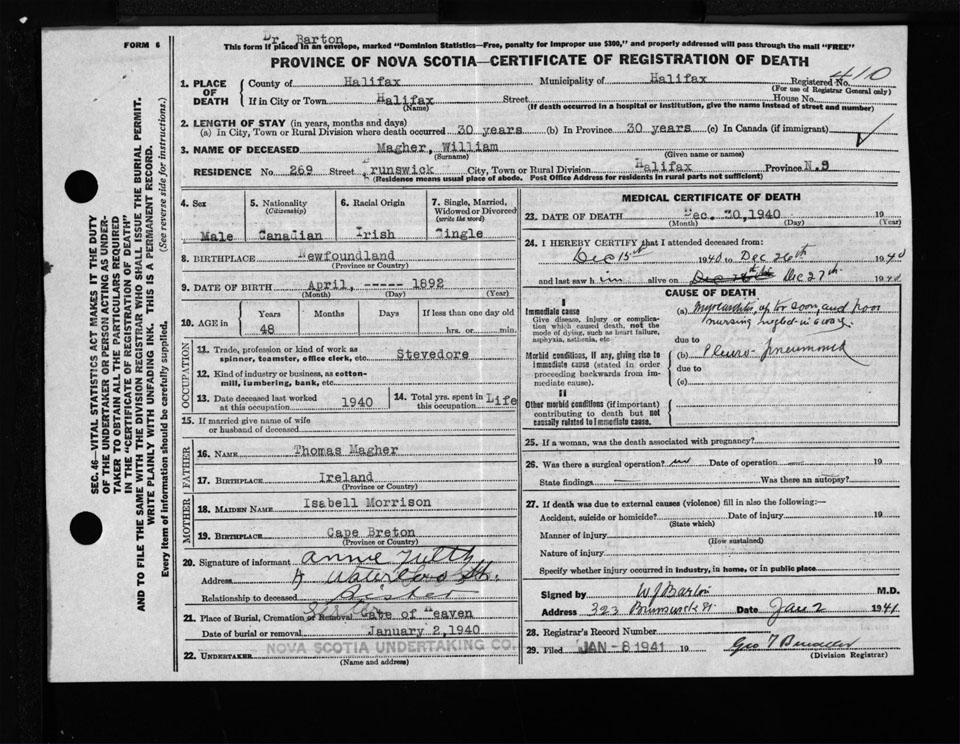 FORM 6
Dr. Barton
This form if placed in an envelope, marked "Dominion Statistics—Free, penalty for improper use $300," and properly addressed will pass through the mail "FREE"
PROVINCE OF NOVA SCOTIA—CERTIFICATE OF REGISTRATION OF DEATH
1. PLACE OF DEATH
County of Halifax Municipality of Halifax Registered No. 410
(For use of Registrar General only)
If in City or Town Halifax Street House No.
(Name) (If death occurred in a hospital or institution, give the name instead of street and number)
2. LENGTH OF STAY (in years, months and days)
(a) In City, Town or Rural Division where death occurred 30 years (b) In Province 30 years (c) In Canada (if immigrant)
3. NAME OF DECEASED Magher, William
(Surname) (Given name or names)
RESIDENCE No. 269 Street Brunswick City, Town or Rural Division Halifax Province N.S
(Residence means usual place of abode. Post Office Address for residents in rural parts not sufficient)
4. Sex Male
5. Nationality (Citizenship) Canadian
6. Racial Origin Irish
7. Single, Married, Widowed or Divorced (write the word) Single
8. BIRTHPLACE Newfoundland
(Province or Country)
9. DATE OF BIRTH April, ----- 1892
(Month) (Day) (Year)
10. AGE in Years 48 Months Days If less than one day old hrs. or min.
OCCUPATION
11. Trade, profession or kind of work as spinner, teamster, office clerk, etc. Stevedore
12. Kind of industry or business, as cotton-mill, lumbering, bank, etc.
13. Date deceased last worked at this occupation 1940
14. Total yrs. spent in this occupation Life
15. If married give name of wife or husband of deceased
FATHER
16. NAME Thomas Magher
17. BIRTHPLACE Ireland
(Province or Country)
MOTHER
18. MAIDEN NAME Isabell Morrison
19. BIRTHPLACE Cape Breton
(Province or Country)
20. Signature of informant Annie
Address Waterloo St.
Relationship to deceased Sister
21. Place of Burial, Cremation or Removal Gate of Heaven
Date of burial or removal January 2, 1940
22. UNDERTAKER NOVA SCOTIA UNDERTAKING CO.
(Name and address)
MEDICAL CERTIFICATE OF DEATH
23. DATE OF DEATH Dec. 30, 1940 19
(Month) (Day) (Year)
24. I HEREBY CERTIFY that I attended deceased from:
Dec 15th 1940 to Dec 26th 1940
and last saw him alive on Dec 27th 1940
CAUSE OF DEATH
I
Immediate cause
Give disease, injury or complication which caused death, not the mode of dying, such as heart failure, asphyxia, asthenia, etc
(a) Myocarditis, up too soon, and poor
nursing
due to
Morbid conditions, if any, giving rise to immediate cause (stated in order proceeding backwards from immediate cause).
(b) Pleuro-Pneumonia
due to
(c)
II
Other morbid conditions (if important) contributing to death but not causally related to immediate cause.
25. If a woman, was the death associated with pregnancy?
26. Was there a surgical operation? no Date of operation 19
State findings Was there an autopsy?
27. If death was due to external causes (violence) fill in also the following:—
Accident, suicide or homicide? Date of injury 19
(State which)
Manner of injury
(How sustained)
Nature of injury
Specify whether injury occurred in industry, in home, or in public place
Signed by W J Barton M.D.
Address 323 Brunswick St. Date Jan 2 1941
28. Registrar's Record Number
29. Filed JAN -8 1941 19
(Division Registrar)
SEC. 46—VITAL STATISTICS ACT MAKES IT THE DUTY
OF THE UNDERTAKER OR PERSON ACTING AS UNDER-
TAKER TO OBTAIN ALL THE PARTICULARS REQUIRED
IN THE "CERTIFICATE OF REGISTRATION OF DEATH"
AND TO FILE THE SAME WITH THE DIVISION REGISTRAR WHO SHALL ISSUE THE BURIAL PERMIT.
WRITE PLAINLY WITH UNFADING INK. THIS IS A PERMANENT RECORD.
Every item of information should be carefully supplied. (See reverse side for instructions.)